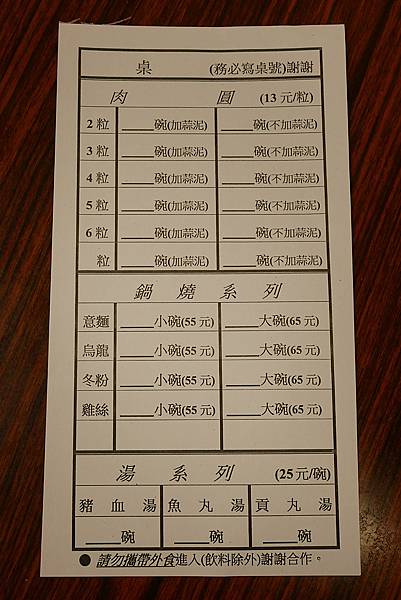 桌 (務必寫桌號)謝謝
肉圓 (13元/粒)
2粒 ____碗(加蒜泥) ____碗(不加蒜泥)
3粒 ____碗(加蒜泥) ____碗(不加蒜泥)
4粒 ____碗(加蒜泥) ____碗(不加蒜泥)
5粒 ____碗(加蒜泥) ____碗(不加蒜泥)
6粒 ____碗(加蒜泥) ____碗(不加蒜泥)
粒 ____碗(加蒜泥) ____碗(不加蒜泥)
鍋燒系列
意麵 ____小碗(55元) ____大碗(65元)
烏龍 ____小碗(55元) ____大碗(65元)
冬粉 ____小碗(55元) ____大碗(65元)
雞絲 ____小碗(55元) ____大碗(65元)
湯系列 (25元/碗)
豬血湯 魚丸湯 貢丸湯
____碗 ____碗 ____碗
●請勿攜帶外食進入(飲料除外)謝謝合作。